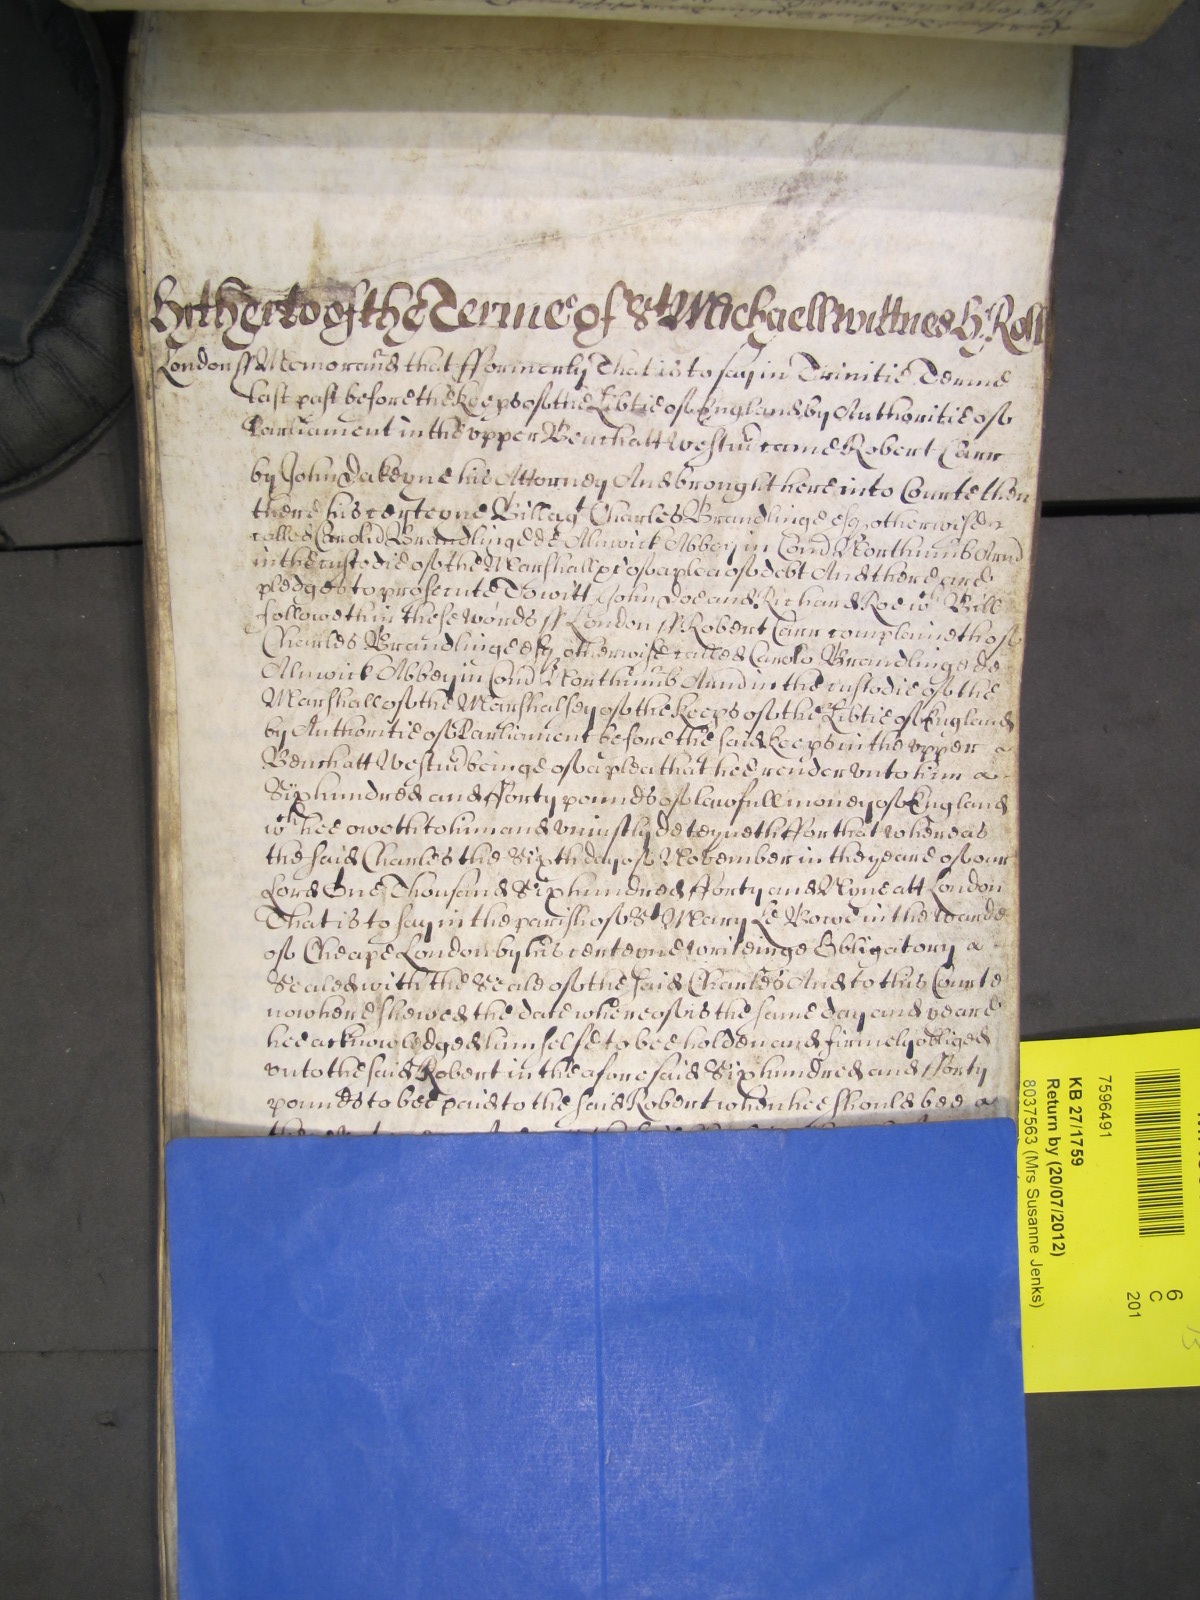 Hitherto of the Terme of St Michaell wittnes H: Roll
London ss Memorand that fformerly That is to say in Trinitie Terme
last past before the Keeps of the Libtie of England by Authoritie of
Parliament in the vpper Bench att Westm came Robert Carr
by John Dakeyne his Attorney And brought here into Courte then
there his certeyne Bill agt Charles Brandlinge esq otherwise
called Carold Brandlinge de Alnwick Abbey in Com Northumb Arm
in the custodie of the Marshall &c of a plea of debt And there are
pledges to prosecute To witt John Doe and Richard Roe wch Bill
followeth in these words ss London ss Robert Carr complaineth of
Charles Brandlinge esq otherwise called Carolo Brandlinge de
Alnwick Abbey in Com Northumb Arm in the custodie of the
Marshall of the Marshalsey of the Keeps of the Libtie of England
by Authoritie of Parliament before the said Keeps in the vpper
Bench att Westm beinge of a plea that hee render vnto him
Six hundred and fforty pounds of lawfull money of England
wch hee oweth to him and vniustly deteyneth ffor that whereas
the said Charles the Sixth day of November in the yeare of our
Lord One Thousand Six hundred fforty and Nyne att London
That is to say in the parish of St Mary Le Bowe in the warde
of Cheape London by his certeyne writeinge Obligatory
Sealed with the Seale of the said Charles And to this Courte
now here shewed the date whereof is the same day and yeare
hee acknowledged himselfe to bee holden and firmely obliged
vnto the said Robert in the aforesaid Six hundred and fforty
pounds to bee paid to the said Robert when hee should bee
7596491
KB 27/1759
Return by (20/07/2012)
8037563 (Mrs Susanne Jenks)
6
C
201